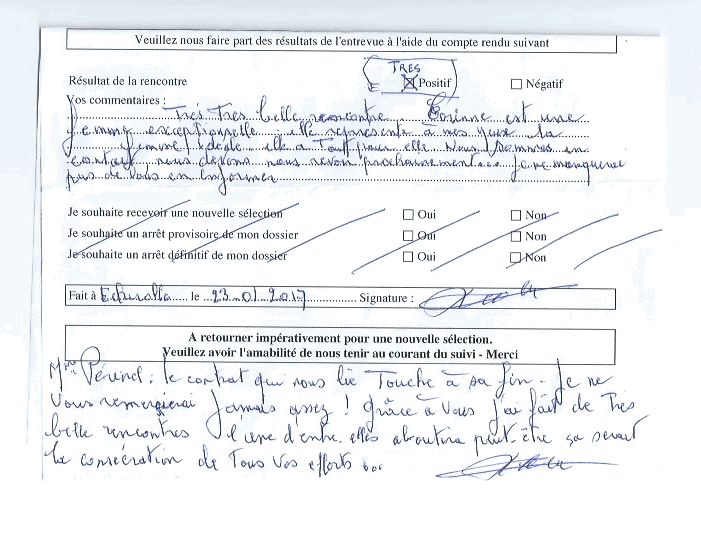 Veuillez nous faire part des résultats de l'entrevue à l'aide du compte rendu suivant
TRES
Résultat de la rencontre Positif Négatif
Vos commentaires :
Très Très belle rencontre Corinne est une
femme exceptionnelle elle représente à mes yeux la
femme idéale elle a Tout pour elle Nous sommes en
contact nous devons nous revoir prochainement.... Je ne manquerai
pas de vous en informer
Je souhaite recevoir une nouvelle sélection Oui Non
Je souhaite un arrêt provisoire de mon dossier Oui Non
Je souhaite un arrêt définitif de mon dossier Oui Non
Fait à le 23-01-2017 Signature :
A retourner impérativement pour une nouvelle sélection.
Veuillez avoir l'amabilité de nous tenir au courant du suivi - Merci
Mme : le contrat qui nous lie Touche à sa fin - Je ne
Vous remercierai Jamais assez ! grâce à Vous j'ai fait de Très
belle rencontres l'une d'entre elles aboutira peut-être ça serait
la consécration de Tous Vos efforts ...